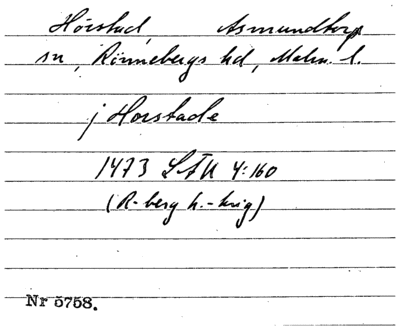 Hörstad, Asmundtorp
sn, Rönnebergs hd, Malm. l.
j Horstade
1473 LÄU 4:160
(R-berg h.-krig)
Nr 5758.